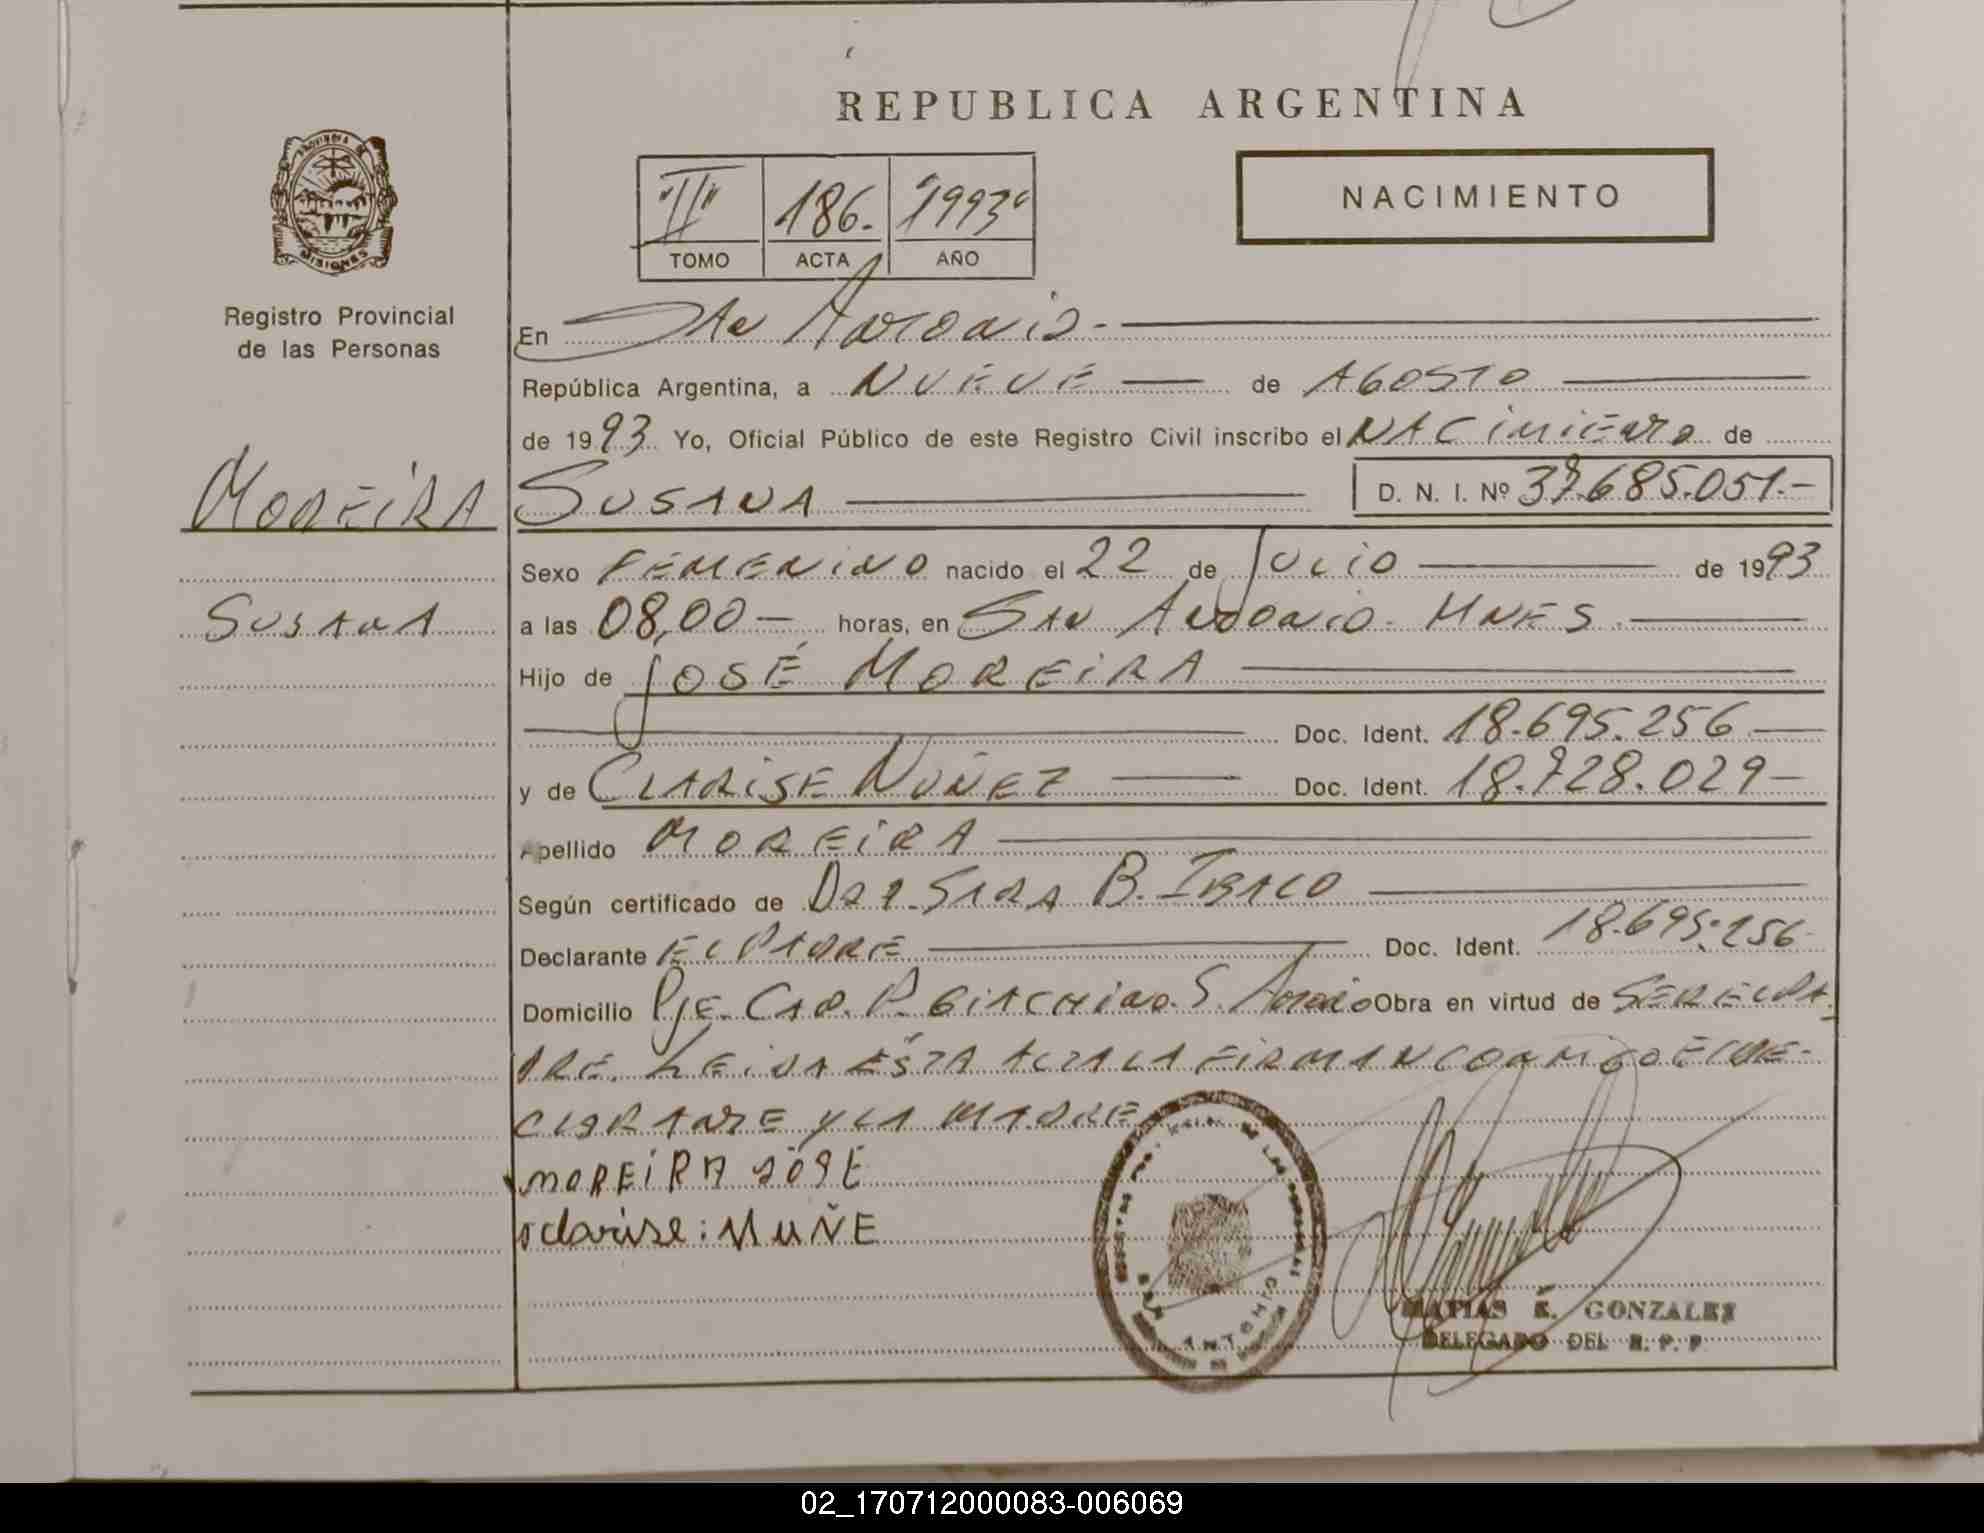 REPUBLICA ARGENTINA
"II" 186.- "1993"
TOMO ACTA AÑO
NACIMIENTO
MISIONES
Registro Provincial
de las Personas
MOREIRA
SUSANA
En San Antonio.-
República Argentina, a NUEVE de AGOSTO
de 1993 Yo, Oficial Público de este Registro Civil inscribo el NACIMIENTO de
SUSANA D. N. I. Nº 37.685.051.-
Sexo FEMENINO nacido el 22 de JULIO de 1993
a las 08,00 - horas, en SAN ANTONIO - MNES.
Hijo de JOSÉ MOREIRA
Doc. Ident. 18.695.256
y de CLARISE NUÑEZ Doc. Ident. 18.728.029-
Apellido MOREIRA
Según certificado de DRA. SARA B. 
Declarante EL PADRE Doc. Ident. 18.695.256
Domicilio PJE. CAP. P. GIACHINO. S. Antonio Obra en virtud de SER EL PA-
DRE. LEIDA ESTA ACTA LA FIRMAN CONMIGO EL DE-
CLARANTE Y LA MADRE
MOREIRA JOSE
clarise: NUÑE
SAN ANTONIO
MATIAS E. GONZALEZ
DELEGADO DEL R. P. P
02_170712000083-006069